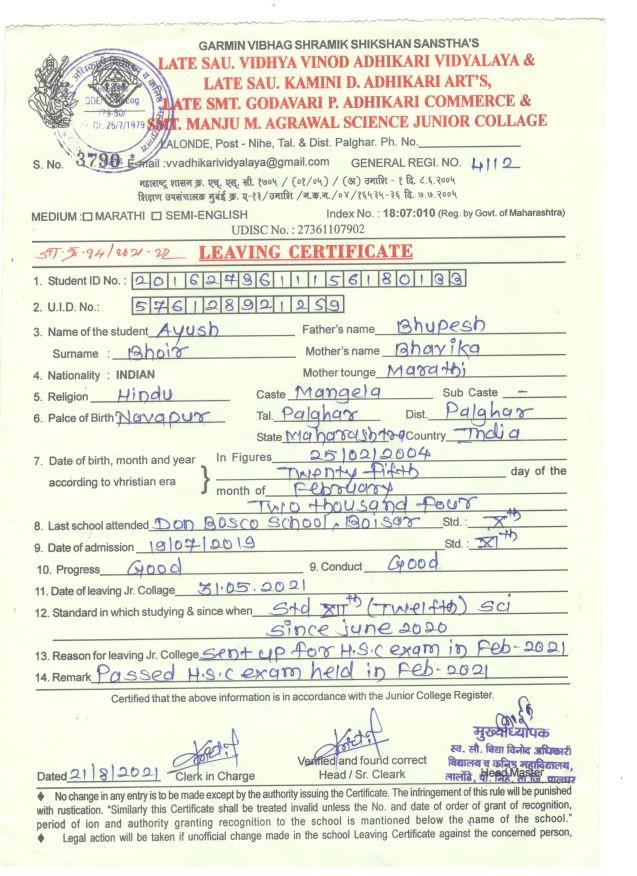 GARMIN VIBHAG SHRAMIK SHIKSHAN SANSTHA'S
LATE SAU. VIDHYA VINOD ADHIKARI VIDYALAYA &
LATE SAU. KAMINI D. ADHIKARI ART'S,
LATE SMT. GODAVARI P. ADHIKARI COMMERCE &
SMT. MANJU M. AGRAWAL SCIENCE JUNIOR COLLAGE
LALONDE, Post - Nihe, Tal. & Dist. Palghar. Ph. No.
79-80/
Dt. 25/7/1979
S. No. 3790 E-mail :vvadhikarividyalaya@gmail.com GENERAL REGI. NO. 4112
महाराष्ट्र शासन क्र. एच्. एस्. सी. १७०५ / (०१/०५) / (अ) उमाशि - १ दि. ८.६.२००५
शिक्षण उपसंचालक मुंबई क्र. ए-१३/उमाशि /न.क.न./०४/१६५३५-३६ दि. ७.७.२००५
MEDIUM : MARATHI SEMI-ENGLISH Index No. : 18:07:010 (Reg. by Govt. of Maharashtra)
UDISC No. : 27361107902
जा.क्र.९४/२०२१-२२ LEAVING CERTIFICATE
1. Student ID No. : 2016273611156180133
2. U.I.D. No.: 576128921259
3. Name of the student Ayush Father's name Bhupesh
Surname : Bhoir Mother's name Bhavika
4. Nationality : INDIAN Mother tounge Marathi
5. Religion Hindu Caste Mangela Sub Caste -
6. Palce of Birth Navapur Tal. Palghar Dist. Palghar
State Maharashtra Country India
7. Date of birth, month and year In Figures 25/02/2004
according to vhristian era } Twenty fifth day of the
month of February
Two thousand four
8. Last school attended Don Bosco School, Boisar Std. : Xth
9. Date of admission 19/07/2019 Std. : XIth
10. Progress Good 9. Conduct Good
11. Date of leaving Jr. Collage 31.05.2021
12. Standard in which studying & since when Std XIIth (Twelfth) sci
since june 2020
13. Reason for leaving Jr. College sent up for H.S.C exam in Feb-2021
14. Remark Passed H.S.C exam held in Feb-2021
Certified that the above information is in accordance with the Junior College Register.
मुख्याध्यापक
स्व. सौ. विद्या विनोद अधिकारी
विद्यालय व कनिष्ठ महाविद्यालय,
लालोंडे, पो. निहे, ता.जि. पालघर
Dated 21/8/2021 Clerk in Charge Verified and found correct
Head / Sr. Cleark Head Master
♦ No change in any entry is to be made except by the authority issuing the Certificate. The infringement of this rule will be punished
with rustication. "Similarly this Certificate shall be treated invalid unless the No. and date of order of grant of recognition,
period of ion and authority granting recognition to the school is mantioned below the name of the school."
♦ Legal action will be taken if unofficial change made in the school Leaving Certificate against the concerned person,